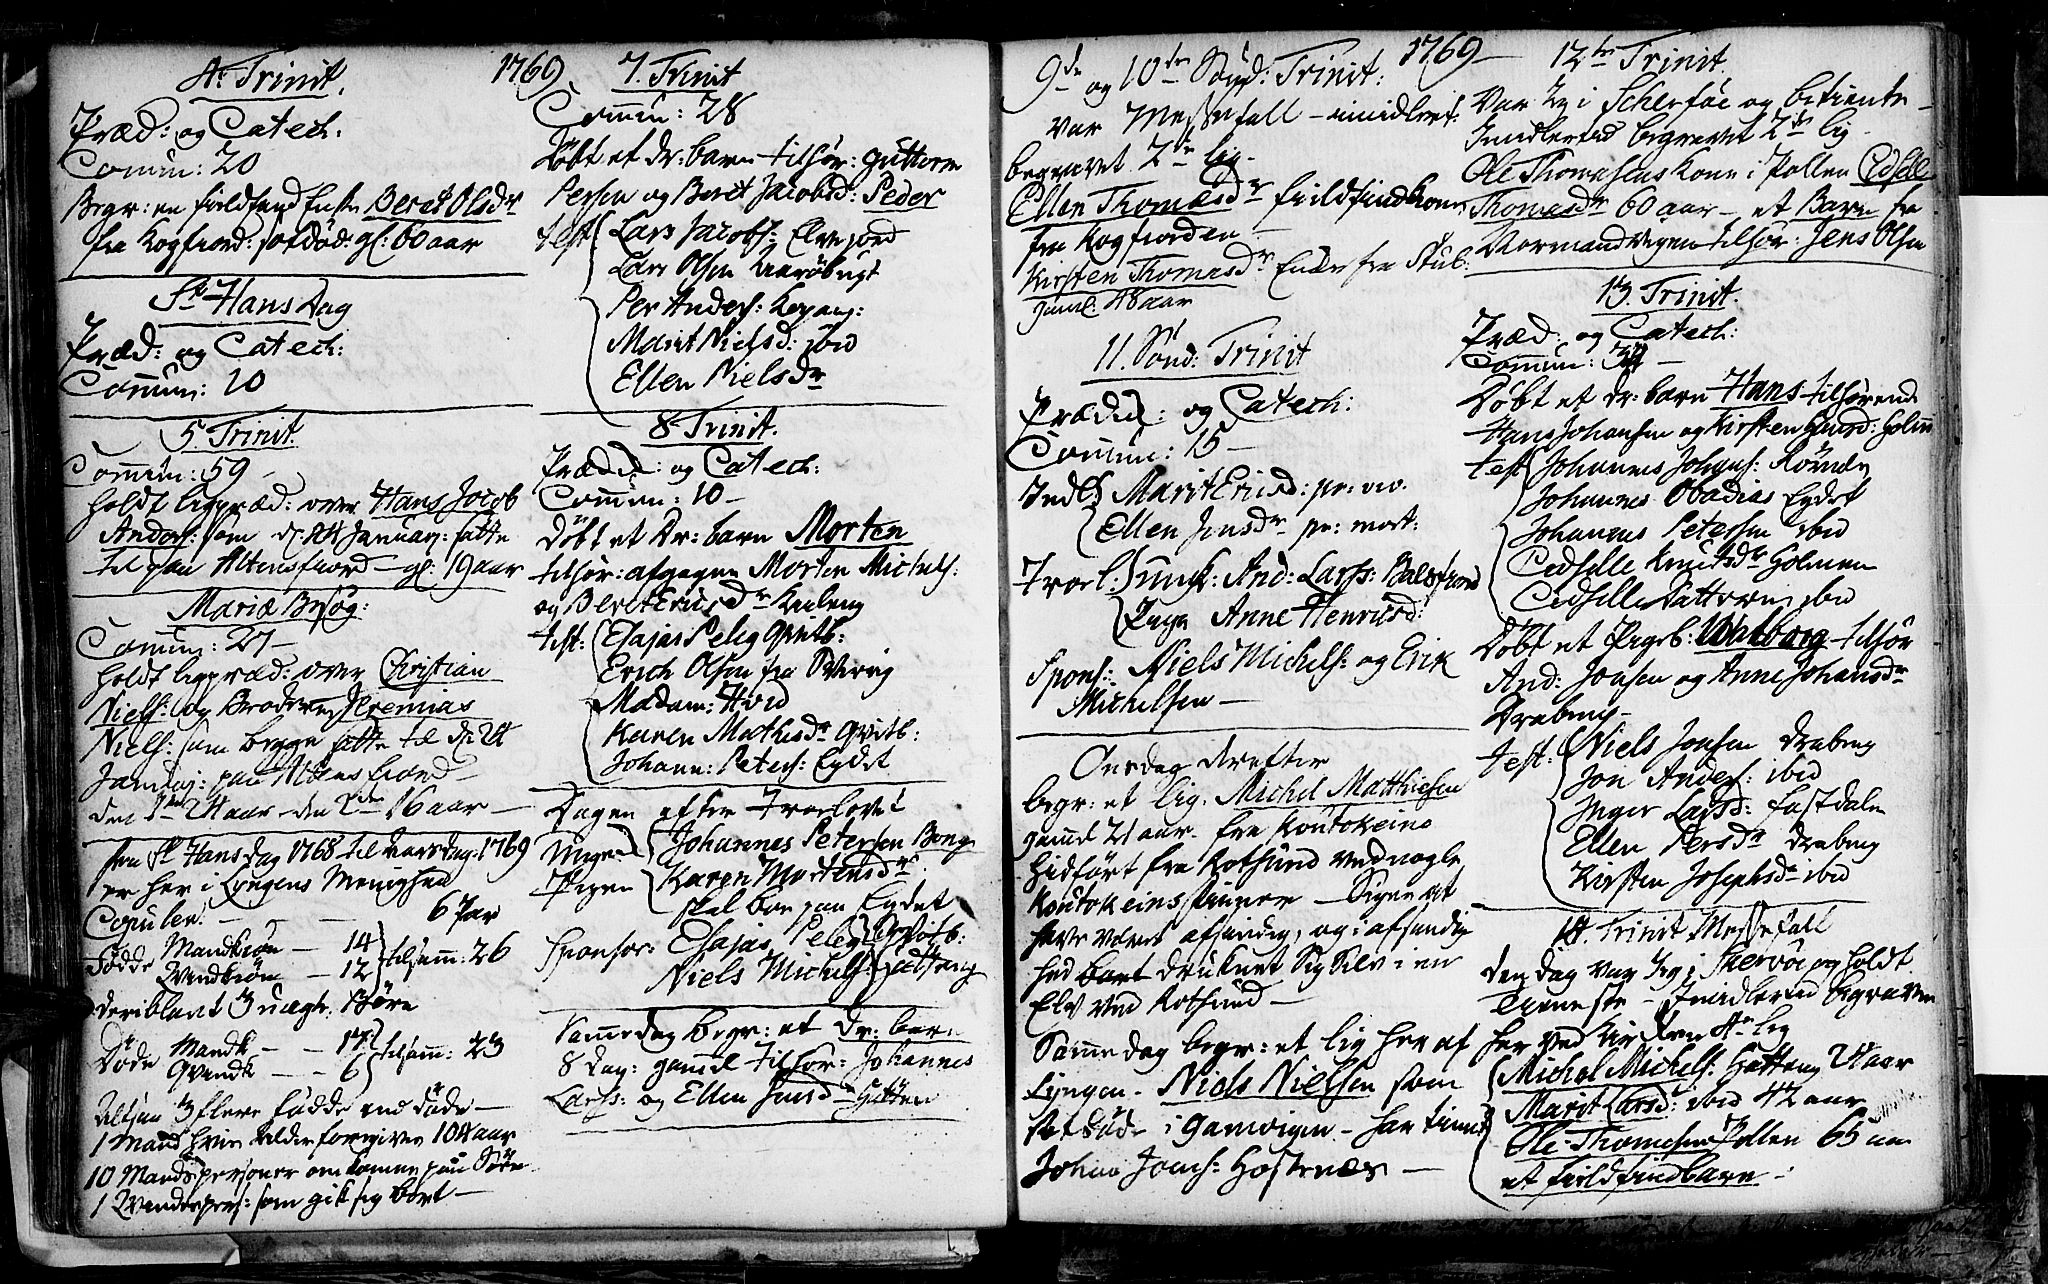 1769
4de Trinit.
Præd: og Catech:
Comun: 20
Begr: en Fieldfind Enke Beret Olsdr
fra Kogfiord: gl: 60 aar
St Hans Dag
Præd: og Catech:
Comun: 10
5 Trinit.
Comun: 59
holdt ligpræd: over Hans Jocob
Anders: som d: 24 Januarij: satte
til paa Altensfiord gl: 19 aar
Mariæ Besøg:
Comun: 27
holdt ligpræd: over Christian
Niels: og Broderen Jeremias
Niels: som begge satte til d: 24
Januarj: paa Altens fiord
den 1ste 24 aar - den 2den 16 aar
fra St Hans dag 1768 til vars dag: 1769
er her i Lyngens Menighed
Copuler: 6 Par
Fødde Mandkiøn - 14
Qvindkiøn - 12 tilsam: 26
deriblant 3 uægte Børn
Døde Mandk - - 17
Qvindk - - 6 tilsam: 23
Altsaa 3 flere fødde end døde
1 Mand hvis Alder forgives 104 aar
10 Mandspersoner omkomne paa Søen
1 Qvindespers: som gik sig bort
7. Trinit
Comun: 28
Døbt et dr: barn tilhør: Guttorm
Persen og Beret Jacobsd: Peder
test Lars Jacobs: Elvejord
Lars Olsen
Per Anders:
Marit Nielsd: ibid
Ellen Nielsdr
8 Trinit.
Præd: og Catech:
Comun: 10
Døbt et Dr: barn Morten
tilhør: afgagne Morten Michels:
og Beret Ericsdr
test: Esajas Peleg Qvitb:
Erich Olsen fra
Madam: Hvid
Karen Mathisdr Qvitb:
Johann: Peters: Eydet
Dagen efter Troelovet
Unge Johannes Petersen
Pigen Karen Mortensdr
skal boe paa Eydet
Sponsor: Esajas Peleg Qvitb:
Niels Michels:
Same dag begr: et dr: barn
8 Dag: gamel tilhør: Johannes
Larss: og Ellen Jensdr
1769
9de og 10de Sønd: Trinit:
Var Messefall - imidlert:
begravet 2de lig
Ellen Thomasdr Fieldfindkone
fra Kogfiorden
Kirsten Thomasdr Enke fra
gaml: 48 aar
11. Sønd: Trinit
Præd: og Catech:
Comun: 15
Indl: Marit Ericsd: pr: viv.
Ellen Jensdr pr: mort:
Troel: Ungk: And: Larss: Balsfiord
Pige Anne Henricsd:
Spons: Niels Michels: og Erik
Michelsen
Onsdag derefter
begr: et lig. Michel Matthiesen
gamel 21 aar fra Koutokeino
hidført fra Rotsund ved nogle
Koutokeins finner - siges at
have været afsindig, og i afsindig
hed druknet sig selv i en
Elv ved Rotsund
Same dag begr: et lig her af
Lyngen. Niels Nielsen som
er døde i Gamvigen -
Johan Joens:
12te Trinit.
Var Jeg i Schervøe og betiente
Imidlertid begravet 2de lig
Ole Thomesens Kone i Pollen Cidselle
Thomesdr 60 aar - et Barn fra
Normandvigen tilhør: Jens Olsen
13. Trinit.
Præd: og Catech:
Comun:
Døbt et dr: barn Hans tilhørende
Hans Johansen og Kirsten
test Johannes Johans: Rørnæs
Johannes Obadias Eydet
Johannes Petersen ibid
Cidselle Knudsdr Holmen
Cidselle ibid
Døbt et Pigeb: Walborg tilhør
And: Jonsen og Anne Johansdr
Drabeng
test: Niels Jonsen Drabeng
Jon Anders: ibid
Inger Larsd: Fastdalen
Ellen Persdr Drabeng
Kirsten Josephsdr ibid
14. Trinit Messefall
den dag var Jeg i Skervøe og holdt
tieneste - Imidlertid begraven
her ved Kirken 4re lig
Michel Michels: Hatteng 24 aar
Marit Larsd: ibid 42 aar
Ole Thomesen Pollen 65 aar
et Fieldfindbarn